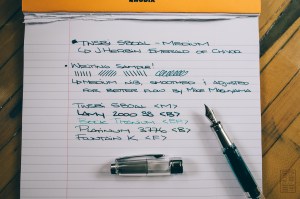 RHODIA
• TWSBI 580AL – MEDIUM
↳ J HERBIN EMERALD OF CHIVOR
• WRITING SAMPLE!
↳ MEDIUM NIB, SMOOTHED & ADJUSTED
FOR BETTER FLOW BY MIKE MASUYAMA
TWSBI 580AL <M>
LAMY 2000 SS <B>
TITANIUM <EF>
PLATINUM 3776 <B>
FOUNTAIN K. <F>